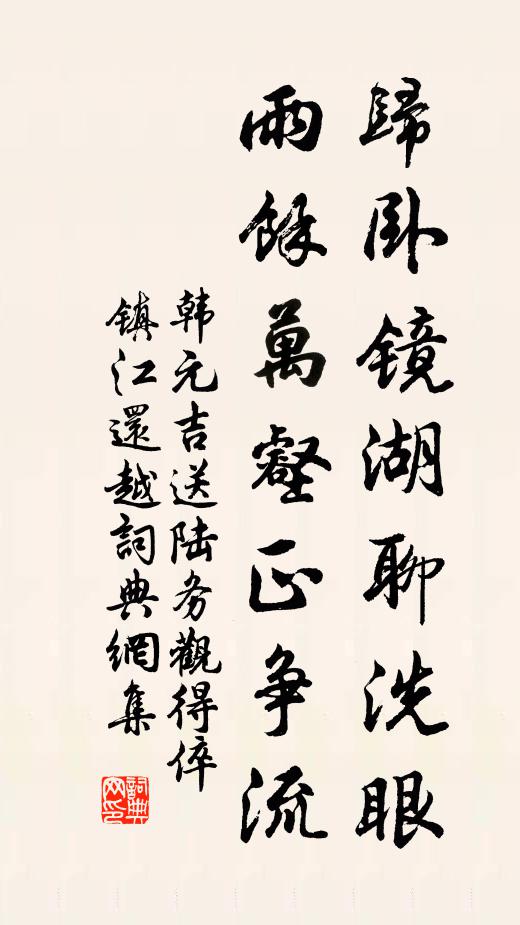 歸卧镜湖聊洗眼
雨餘萬壑正争流
韩元吉送陆务觀得倅
镇江還越詞典網集
詞典
网印